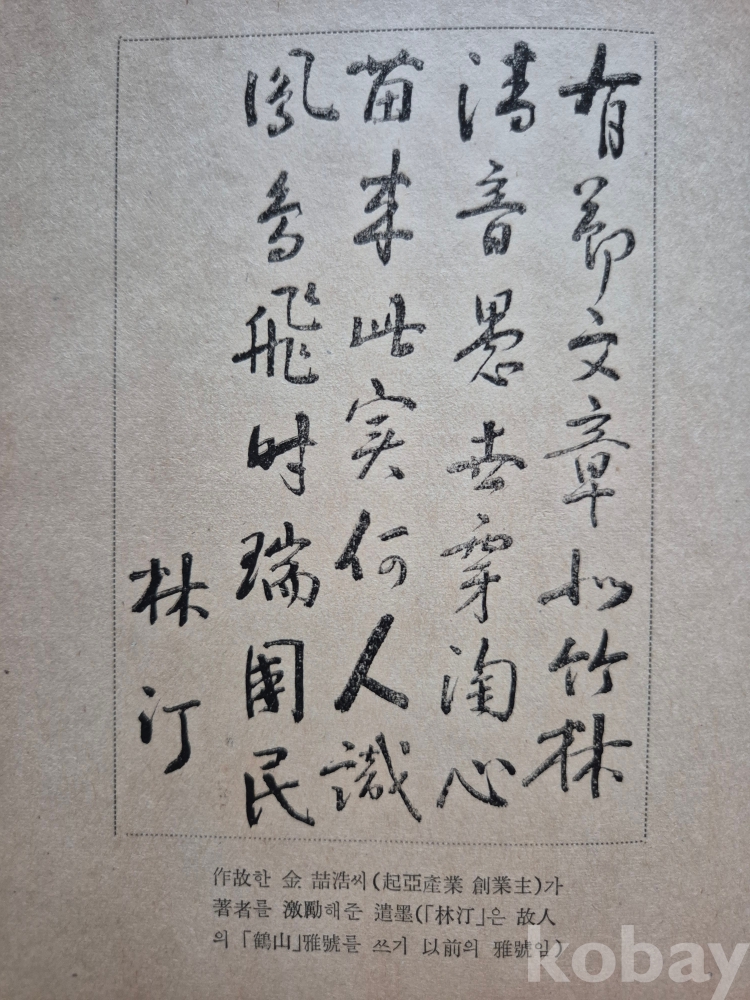 有節文章似竹林
清音愚穿淘心
苗来此实何人識
鳳鳥飛时瑞國民
林汀
作故한 金 喆浩씨(起亞產業 創業主)가
著者를 激勵해준 遺墨(「林汀」은 故人
의 「鶴山」雅號를 쓰기 以前의 雅號임)
kobay